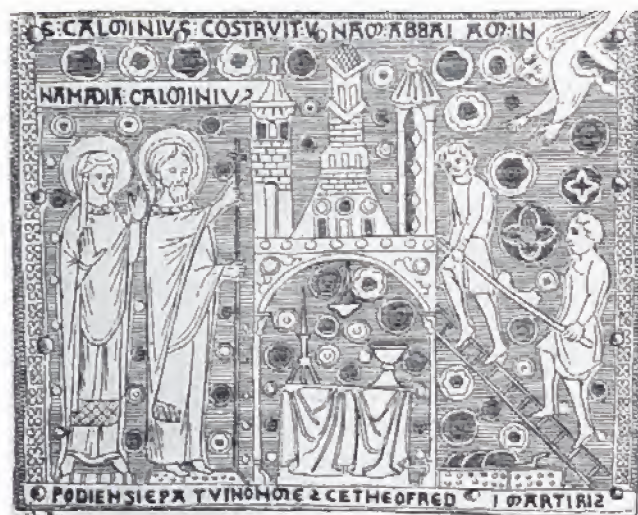 S: CALMINIVS: COSTRVIT: VNAM ABBAI AM IN
NAMADIA: CALMINIVS
PODIENSI EPA TVINOHOTE Z CE THEOFRED I MARTIRIS